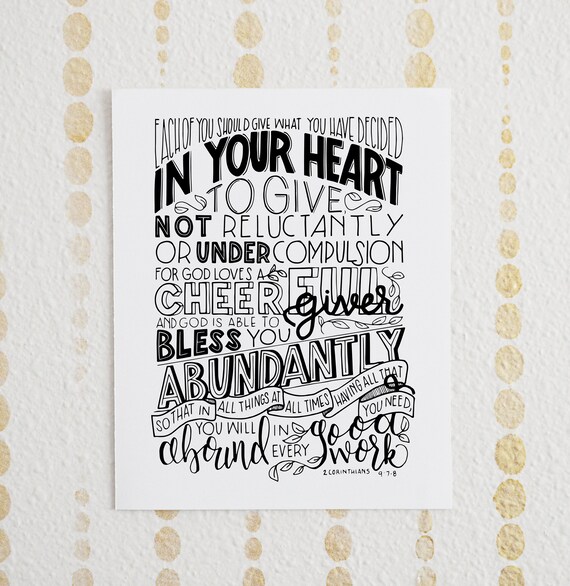 EACH OF YOU SHOULD GIVE WHAT YOU HAVE DECIDED
IN YOUR HEART
TO GIVE,
NOT RELUCTANTLY
OR UNDER COMPULSION
FOR GOD LOVES A
CHEERFUL giver
AND GOD IS ABLE TO
BLESS YOU
ABUNDANTLY
SO THAT IN ALL THINGS AT ALL TIMES HAVING ALL THAT YOU NEED
YOU WILL
abound IN EVERY good work
2 CORINTHIANS 9 7-8